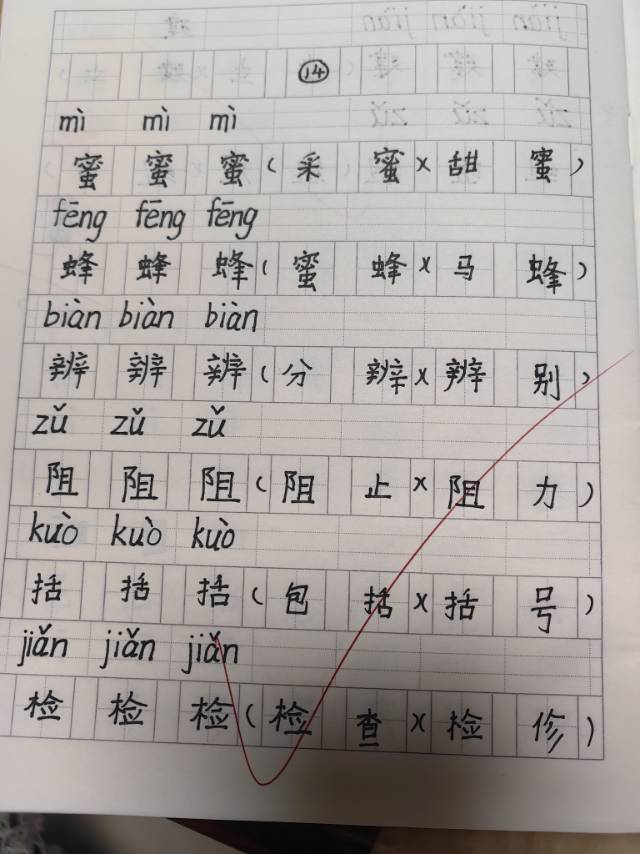 14
mì mì mì
蜜 蜜 蜜 ( 采 蜜 x 甜 蜜 )
fēng fēng fēng
蜂 蜂 蜂 ( 蜜 蜂 x 马 蜂 )
biàn biàn biàn
辨 辨 辨 ( 分 辨 x 辨 别 )
zǔ zǔ zǔ
阻 阻 阻 ( 阻 止 x 阻 力 )
kuò kuò kuò
括 括 括 ( 包 括 x 括 号 )
jiǎn jiǎn jiǎn
检 检 检 ( 检 查 x 检 修 )